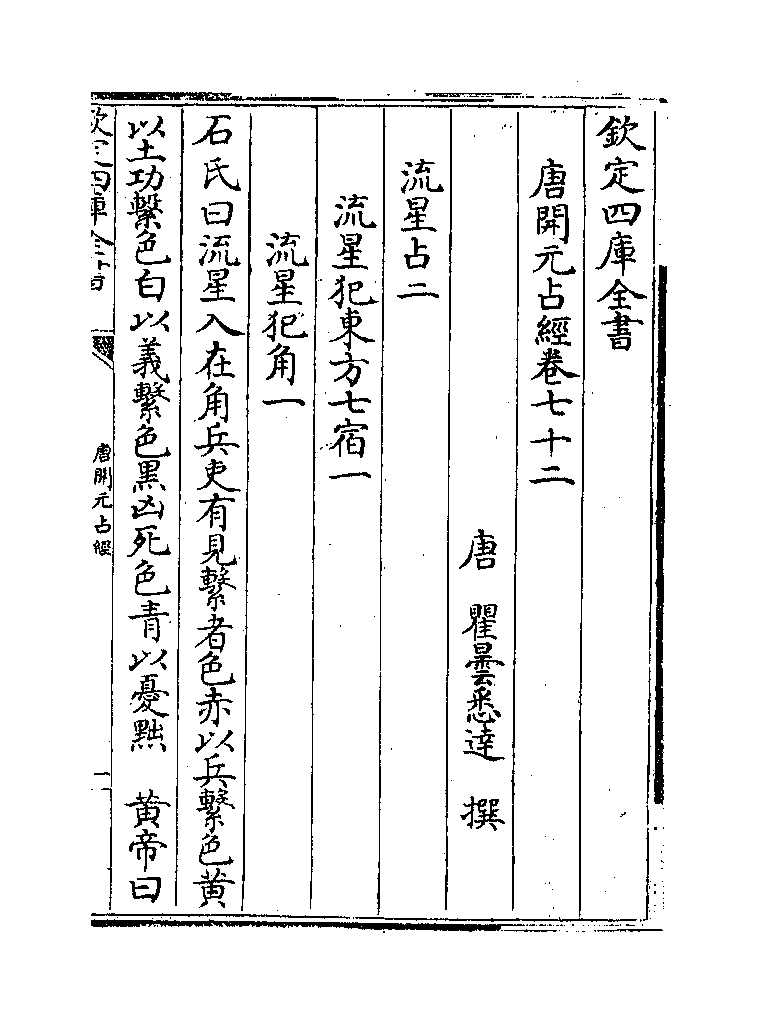 欽定四庫全書
唐開元占經卷七十二
唐 瞿曇悉達 撰
流星占二
流星犯東方七宿一
流星犯角一
石氏曰流星入在角兵吏有見繫者色赤以兵繫色黄
以土功繫色白以義繫色黑凶死色青以憂黜 黄帝曰
欽定四庫全書
唐開元占經
一